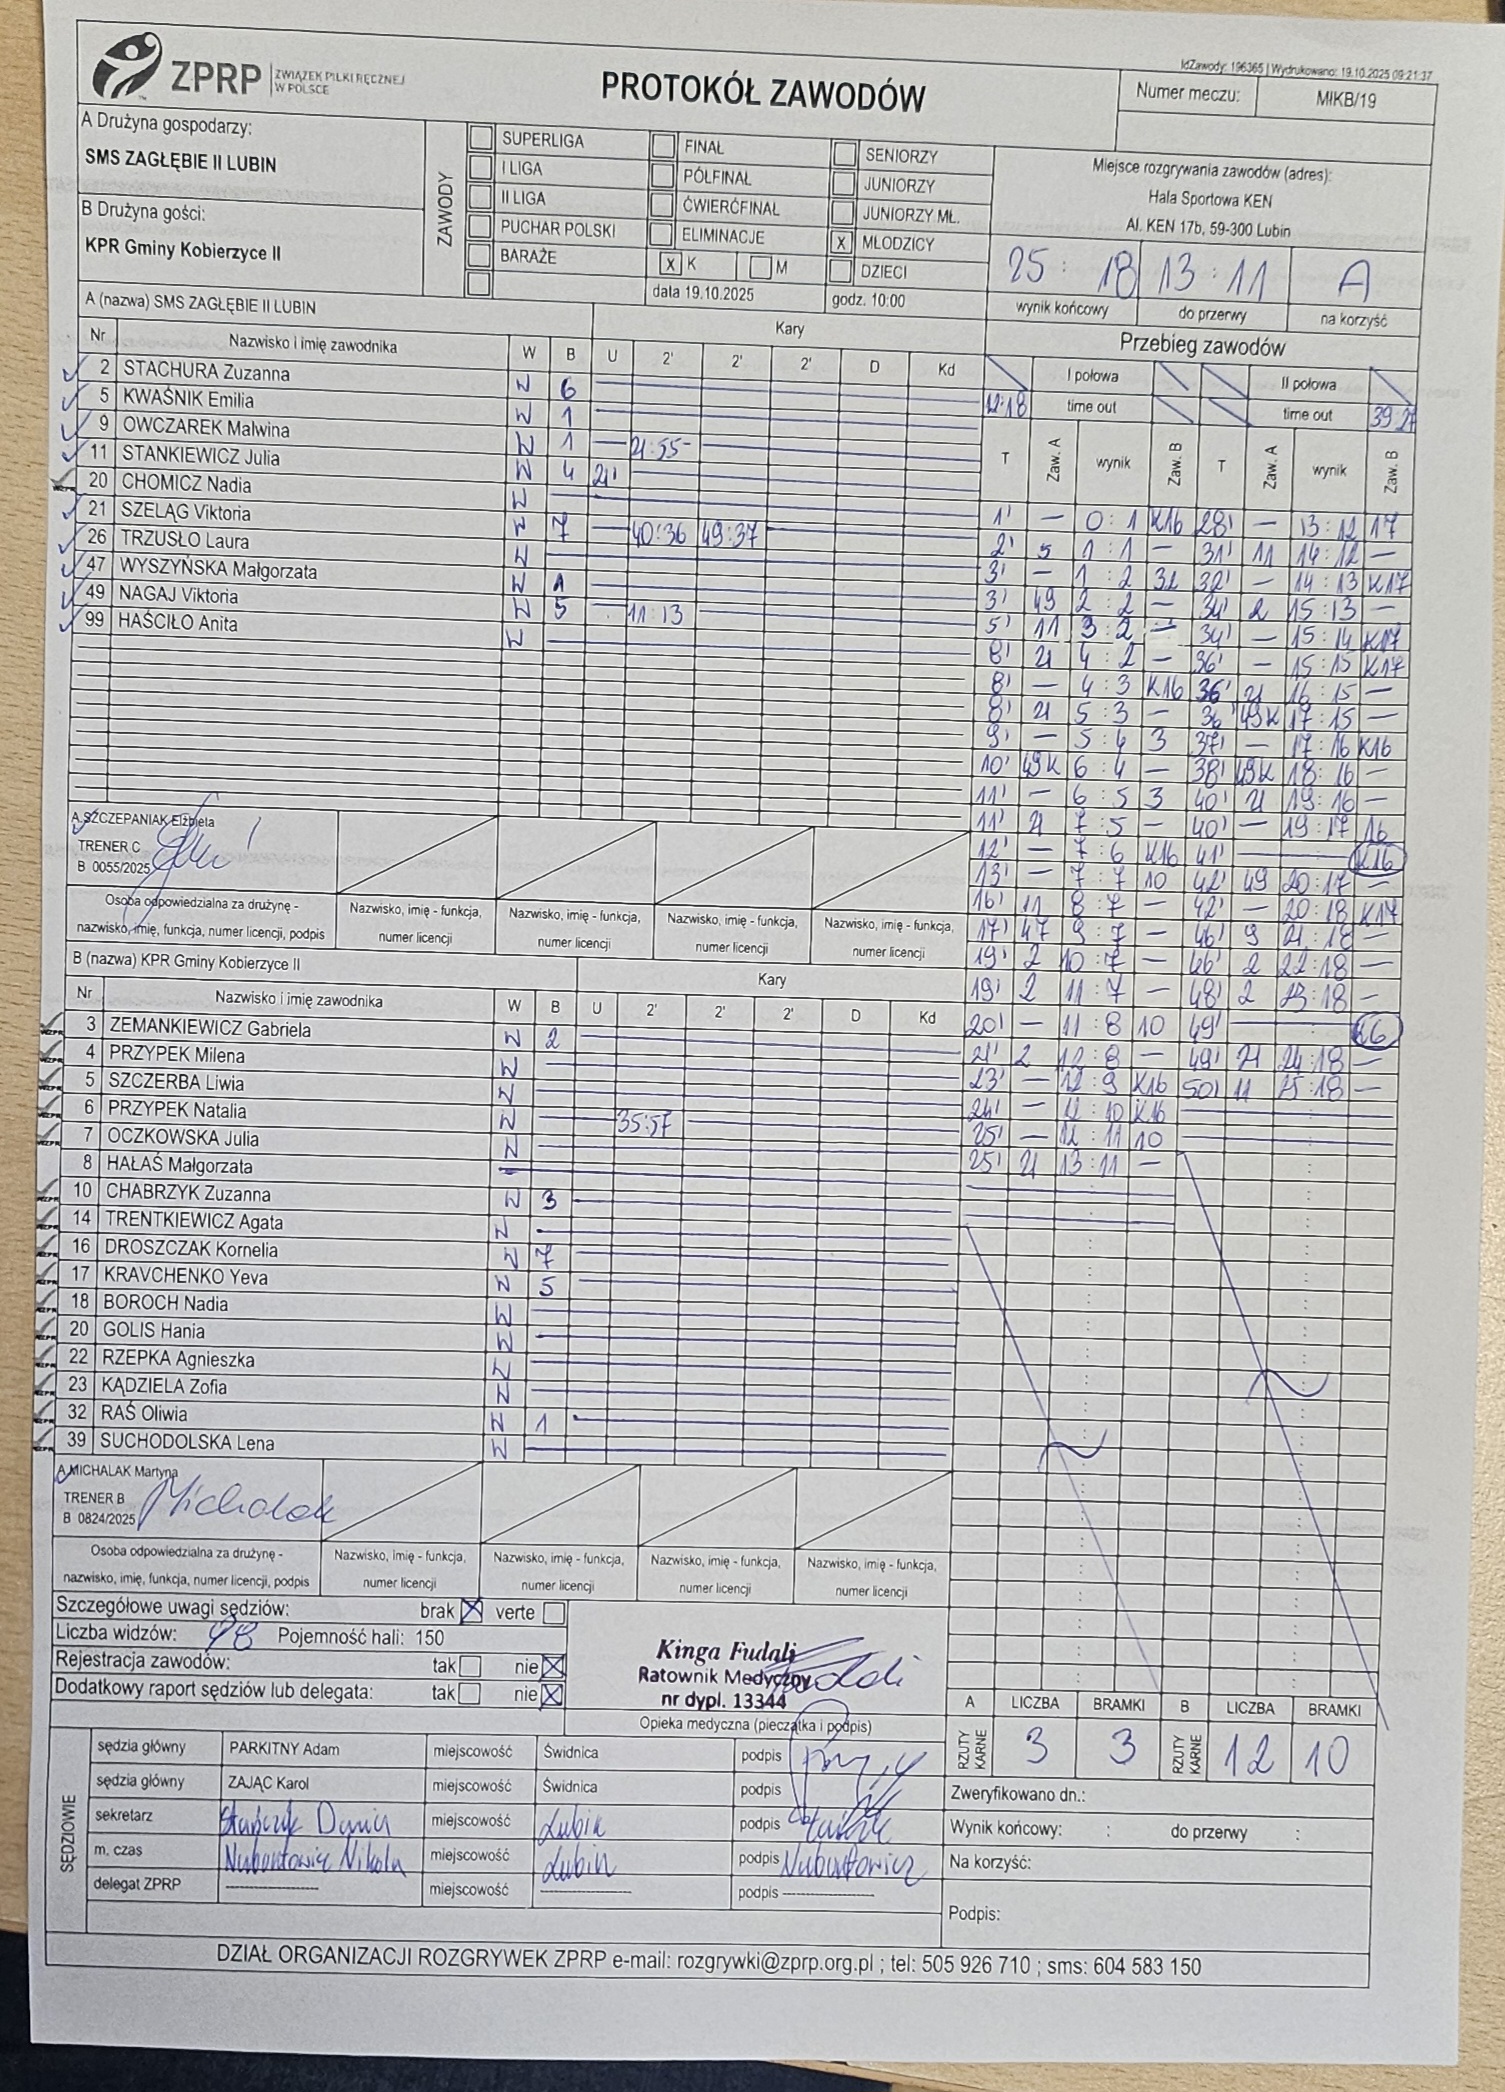 IdZawody: 196365 | Wydrukowano: 19.10.2025 09:21:37
ZPRP ZWIĄZEK PIŁKI RĘCZNEJ W POLSCE
PROTOKÓŁ ZAWODÓW
Numer meczu: MIKB/19
A Drużyna gospodarzy:
SMS ZAGŁĘBIE II LUBIN
B Drużyna gości:
KPR Gminy Kobierzyce II
ZAWODY
SUPERLIGA FINAŁ SENIORZY
I LIGA PÓŁFINAŁ JUNIORZY
II LIGA ĆWIERĆFINAŁ JUNIORZY MŁ.
PUCHAR POLSKI ELIMINACJE X MŁODZICY
BARAŻE X K M DZIECI
data 19.10.2025 godz. 10:00
Miejsce rozgrywania zawodów (adres):
Hala Sportowa KEN
Al. KEN 17b, 59-300 Lubin
25 : 18 13 : 11 A
wynik końcowy do przerwy na korzyść
A (nazwa) SMS ZAGŁĘBIE II LUBIN
Kary
Nr Nazwisko i imię zawodnika W B U 2' 2' 2' D Kd
2 STACHURA Zuzanna W 6
5 KWAŚNIK Emilia W 1
9 OWCZAREK Malwina W 1 21:55
11 STANKIEWICZ Julia W 4 21'
20 CHOMICZ Nadia W
21 SZELĄG Viktoria W 7 40:36 49:37
26 TRZUSŁO Laura W
47 WYSZYŃSKA Małgorzata W 1
49 NAGAJ Viktoria W 5 11:13
99 HAŚCIŁO Anita W
A.SZCZEPANIAK Elżbieta
TRENER C
B 0055/2025
Osoba odpowiedzialna za drużynę - nazwisko, imię, funkcja, numer licencji, podpis
Nazwisko, imię - funkcja, numer licencji
Nazwisko, imię - funkcja, numer licencji
Nazwisko, imię - funkcja, numer licencji
Nazwisko, imię - funkcja, numer licencji
B (nazwa) KPR Gminy Kobierzyce II
Kary
Nr Nazwisko i imię zawodnika W B U 2' 2' 2' D Kd
3 ZEMANKIEWICZ Gabriela W 2
4 PRZYPEK Milena W
5 SZCZERBA Liwia W
6 PRZYPEK Natalia W 35:57
7 OCZKOWSKA Julia W
8 HAŁAŚ Małgorzata
10 CHABRZYK Zuzanna W 3
14 TRENTKIEWICZ Agata W
16 DROSZCZAK Kornelia W 7
17 KRAVCHENKO Yeva W 5
18 BOROCH Nadia W
20 GOLIS Hania W
22 RZEPKA Agnieszka W
23 KĄDZIELA Zofia W
32 RAŚ Oliwia W 1
39 SUCHODOLSKA Lena W
A.MICHALAK Martyna
TRENER B
B 0824/2025 Michalak
Osoba odpowiedzialna za drużynę - nazwisko, imię, funkcja, numer licencji, podpis
Nazwisko, imię - funkcja, numer licencji
Nazwisko, imię - funkcja, numer licencji
Nazwisko, imię - funkcja, numer licencji
Nazwisko, imię - funkcja, numer licencji
Przebieg zawodów
I połowa II połowa
12:18 time out time out 39:27
T Zaw. A wynik Zaw. B T Zaw. A wynik Zaw. B
1' — 0:1 K16 28' — 13:12 17
2' 5 1:1 — 31' 11 14:12 —
3' — 1:2 32 32' — 14:13 K17
3' 49 2:2 — 34' 2 15:13 —
5' 11 3:2 — 34' — 15:14 K17
8' 21 4:2 — 36' — 15:15 K17
8' — 4:3 K16 36' 21 16:15 —
8' 21 5:3 — 36' 49K 17:15 —
9' — 5:4 3 37' — 17:16 K16
10' 49K 6:4 — 38' 49K 18:16 —
11' — 6:5 3 40' 21 19:16 —
11' 21 7:5 — 40' — 19:17 16
12' — 7:6 K16 41' — K16
13' — 7:7 10 42' 49 20:17 —
16' 11 8:7 — 42' — 20:18 K17
17' 47 9:7 — 46' 9 21:18 —
19' 2 10:7 — 46' 2 22:18 —
19' 2 11:7 — 48' 2 23:18 —
20' — 11:8 10 49' —
21' 2 12:8 — 49' 21 24:18 —
23' — 12:9 K16 50' 11 25:18 —
24' — 12:10 K16
25' — 12:11 10
25' 21 13:11 —
Szczegółowe uwagi sędziów: brak X verte
Liczba widzów: 98 Pojemność hali: 150
Rejestracja zawodów: tak nie X
Dodatkowy raport sędziów lub delegata: tak nie X
Kinga Fudali
Ratownik Medyczny
nr dypl. 13344
Opieka medyczna (pieczątka i podpis)
A LICZBA BRAMKI B LICZBA BRAMKI
RZUTY KARNE 3 3 RZUTY KARNE 12 10
SĘDZIOWIE
sędzia główny PARKITNY Adam miejscowość Świdnica podpis
sędzia główny ZAJĄC Karol miejscowość Świdnica podpis
sekretarz miejscowość Lubin podpis
m. czas Nikola miejscowość Lubin podpis
delegat ZPRP miejscowość podpis
Zweryfikowano dn.:
Wynik końcowy: : do przerwy :
Na korzyść:
Podpis:
DZIAŁ ORGANIZACJI ROZGRYWEK ZPRP e-mail: rozgrywki@zprp.org.pl ; tel: 505 926 710 ; sms: 604 583 150